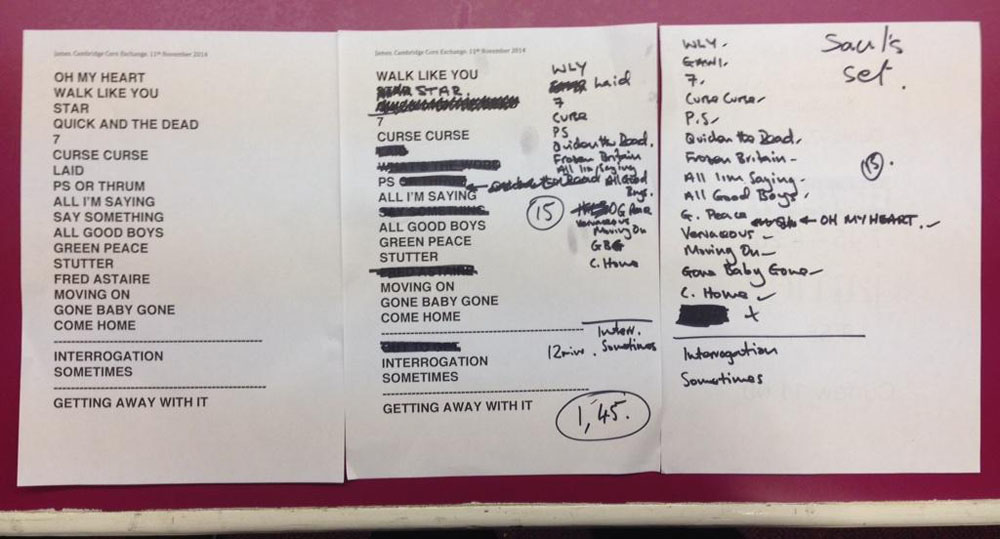 James. Cambridge Corn Exchange. 11th November 2014
OH MY HEART
WALK LIKE YOU
STAR
QUICK AND THE DEAD
7
CURSE CURSE
LAID
PS OR THRUM
ALL I'M SAYING
SAY SOMETHING
ALL GOOD BOYS
GREEN PEACE
STUTTER
FRED ASTAIRE
MOVING ON
GONE BABY GONE
COME HOME
INTERROGATION
SOMETIMES
GETTING AWAY WITH IT
James. Cambridge Corn Exchange. 11th November 2014
WALK LIKE YOU
STAR STAR.
7
CURSE CURSE
PS OR THRUM
ALL I'M SAYING
SAY SOMETHING
ALL GOOD BOYS
GREEN PEACE
STUTTER
FRED ASTAIRE
MOVING ON
GONE BABY GONE
COME HOME
INTERROGATION
SOMETIMES
GETTING AWAY WITH IT
WLY
Laid
7
CURSE
PS
Frozen Britain
All Im Saying
All Good
Boys.
15
Moving On
GBG
C. Home
Interr.
12mins. Sometimes
1,45.
Saul's
set.
WLY.
7.
Curse Curse
P.S.
Frozen Britain
All I'm Saying
All Good Boys
15.
G. Peace ← OH MY HEART.
Moving On
Gone Baby Gone
C. Home
Interrogation
Sometimes